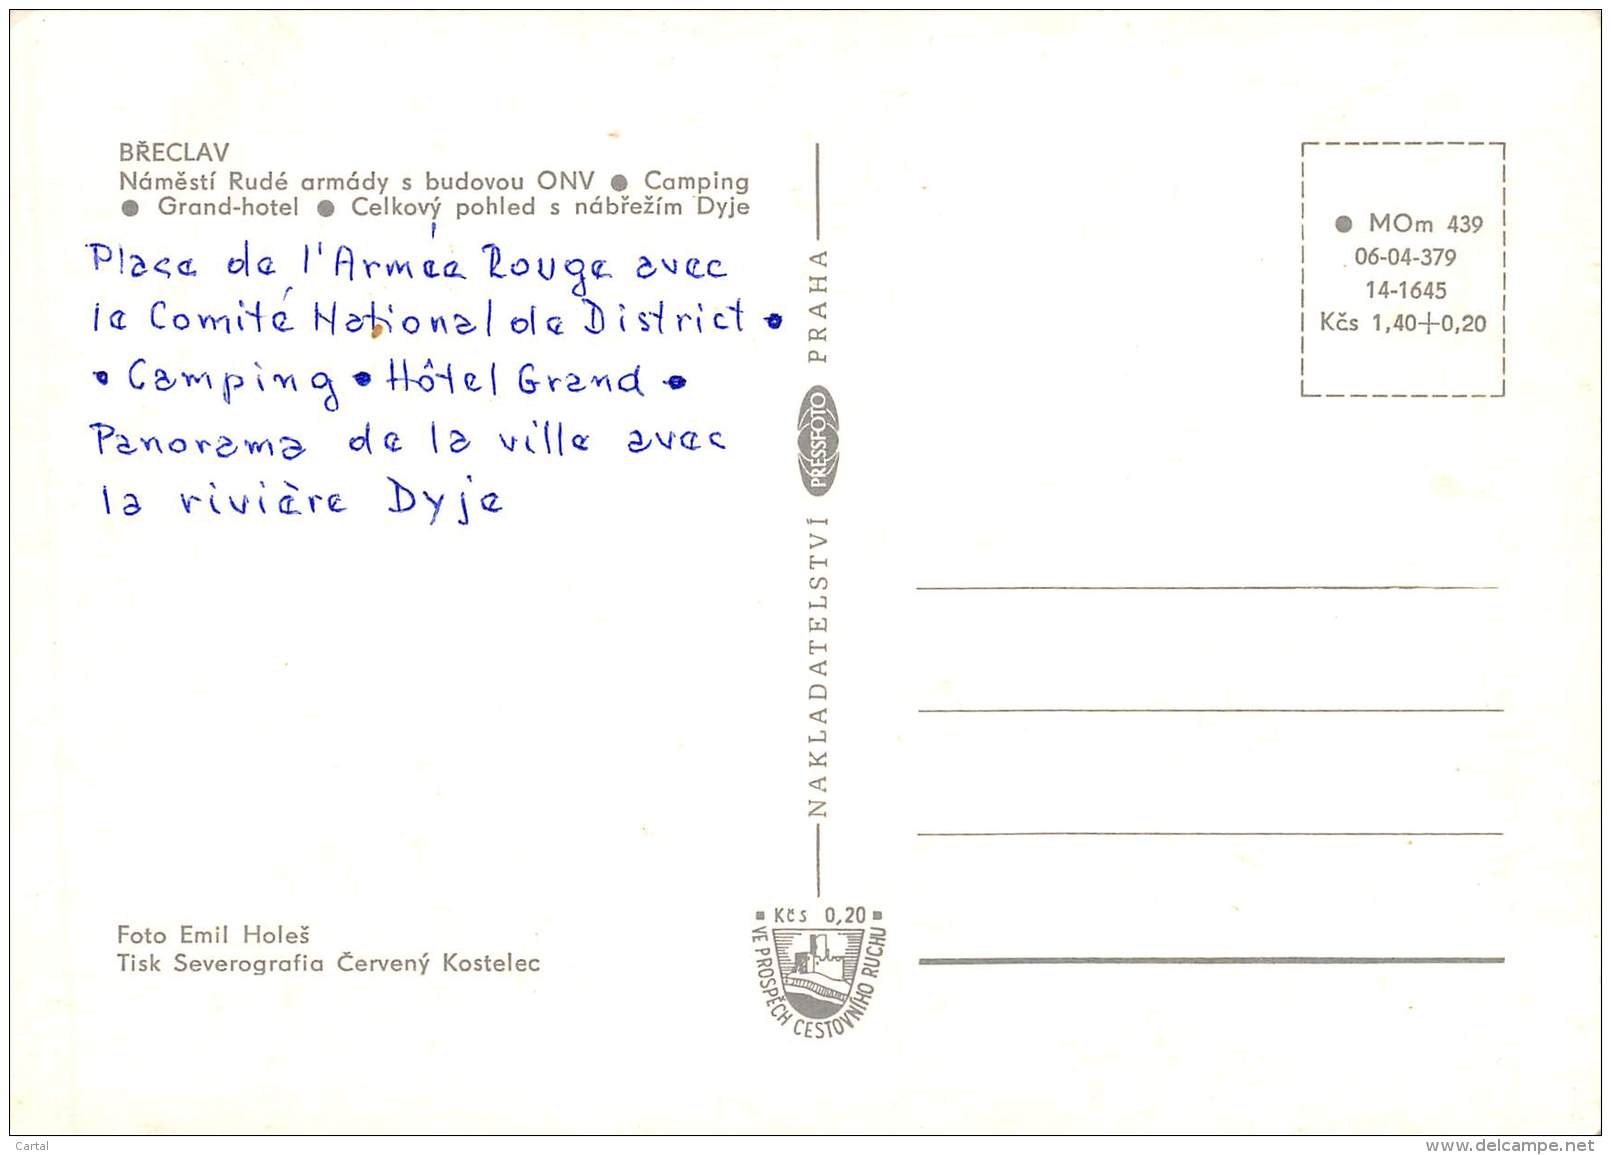 BŘECLAV
Náměstí Rudé armády s budovou ONV ● Camping
● Grand-hotel ● Celkový pohled s nábřežím Dyje
Place de l'Armée Rouge avec
le Comité National de District •
• Camping • Hôtel Grand •
Panorama de la ville avec
la rivière Dyje
Foto Emil Holeš
Tisk Severografia Červený Kostelec
NAKLADATELSTVÍ PRESSFOTO PRAHA
▪ Kčs 0,20 ▪
VE PROSPĚCH CESTOVNÍHO RUCHU
● MOm 439
06-04-379
14-1645
Kčs 1,40+0,20
Cartal
www.delcampe.net